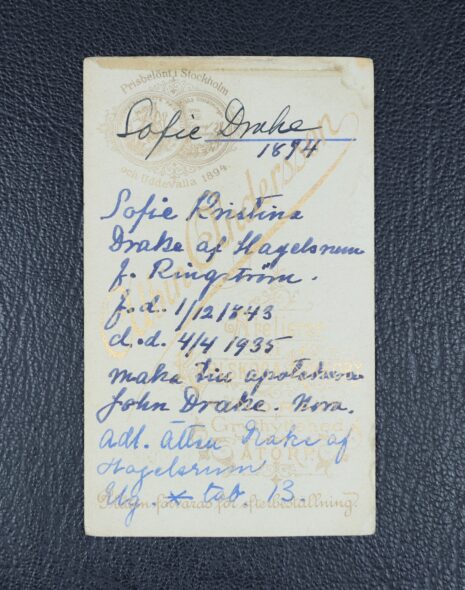 Prisbelönt i Stockholm
och Uddevalla 1894
Sofie Drake
1894
Sofie Kristina
Drake af Hagelsrum
f. Ringström.
f.d. 1/12 1843
d.d. 4/4 1935
maka till apotekare
John Drake. Nora.
Adl. Ätten Drake af
Hagelsrum
Elg. tab. 13.
förvaras för efterbeställning.